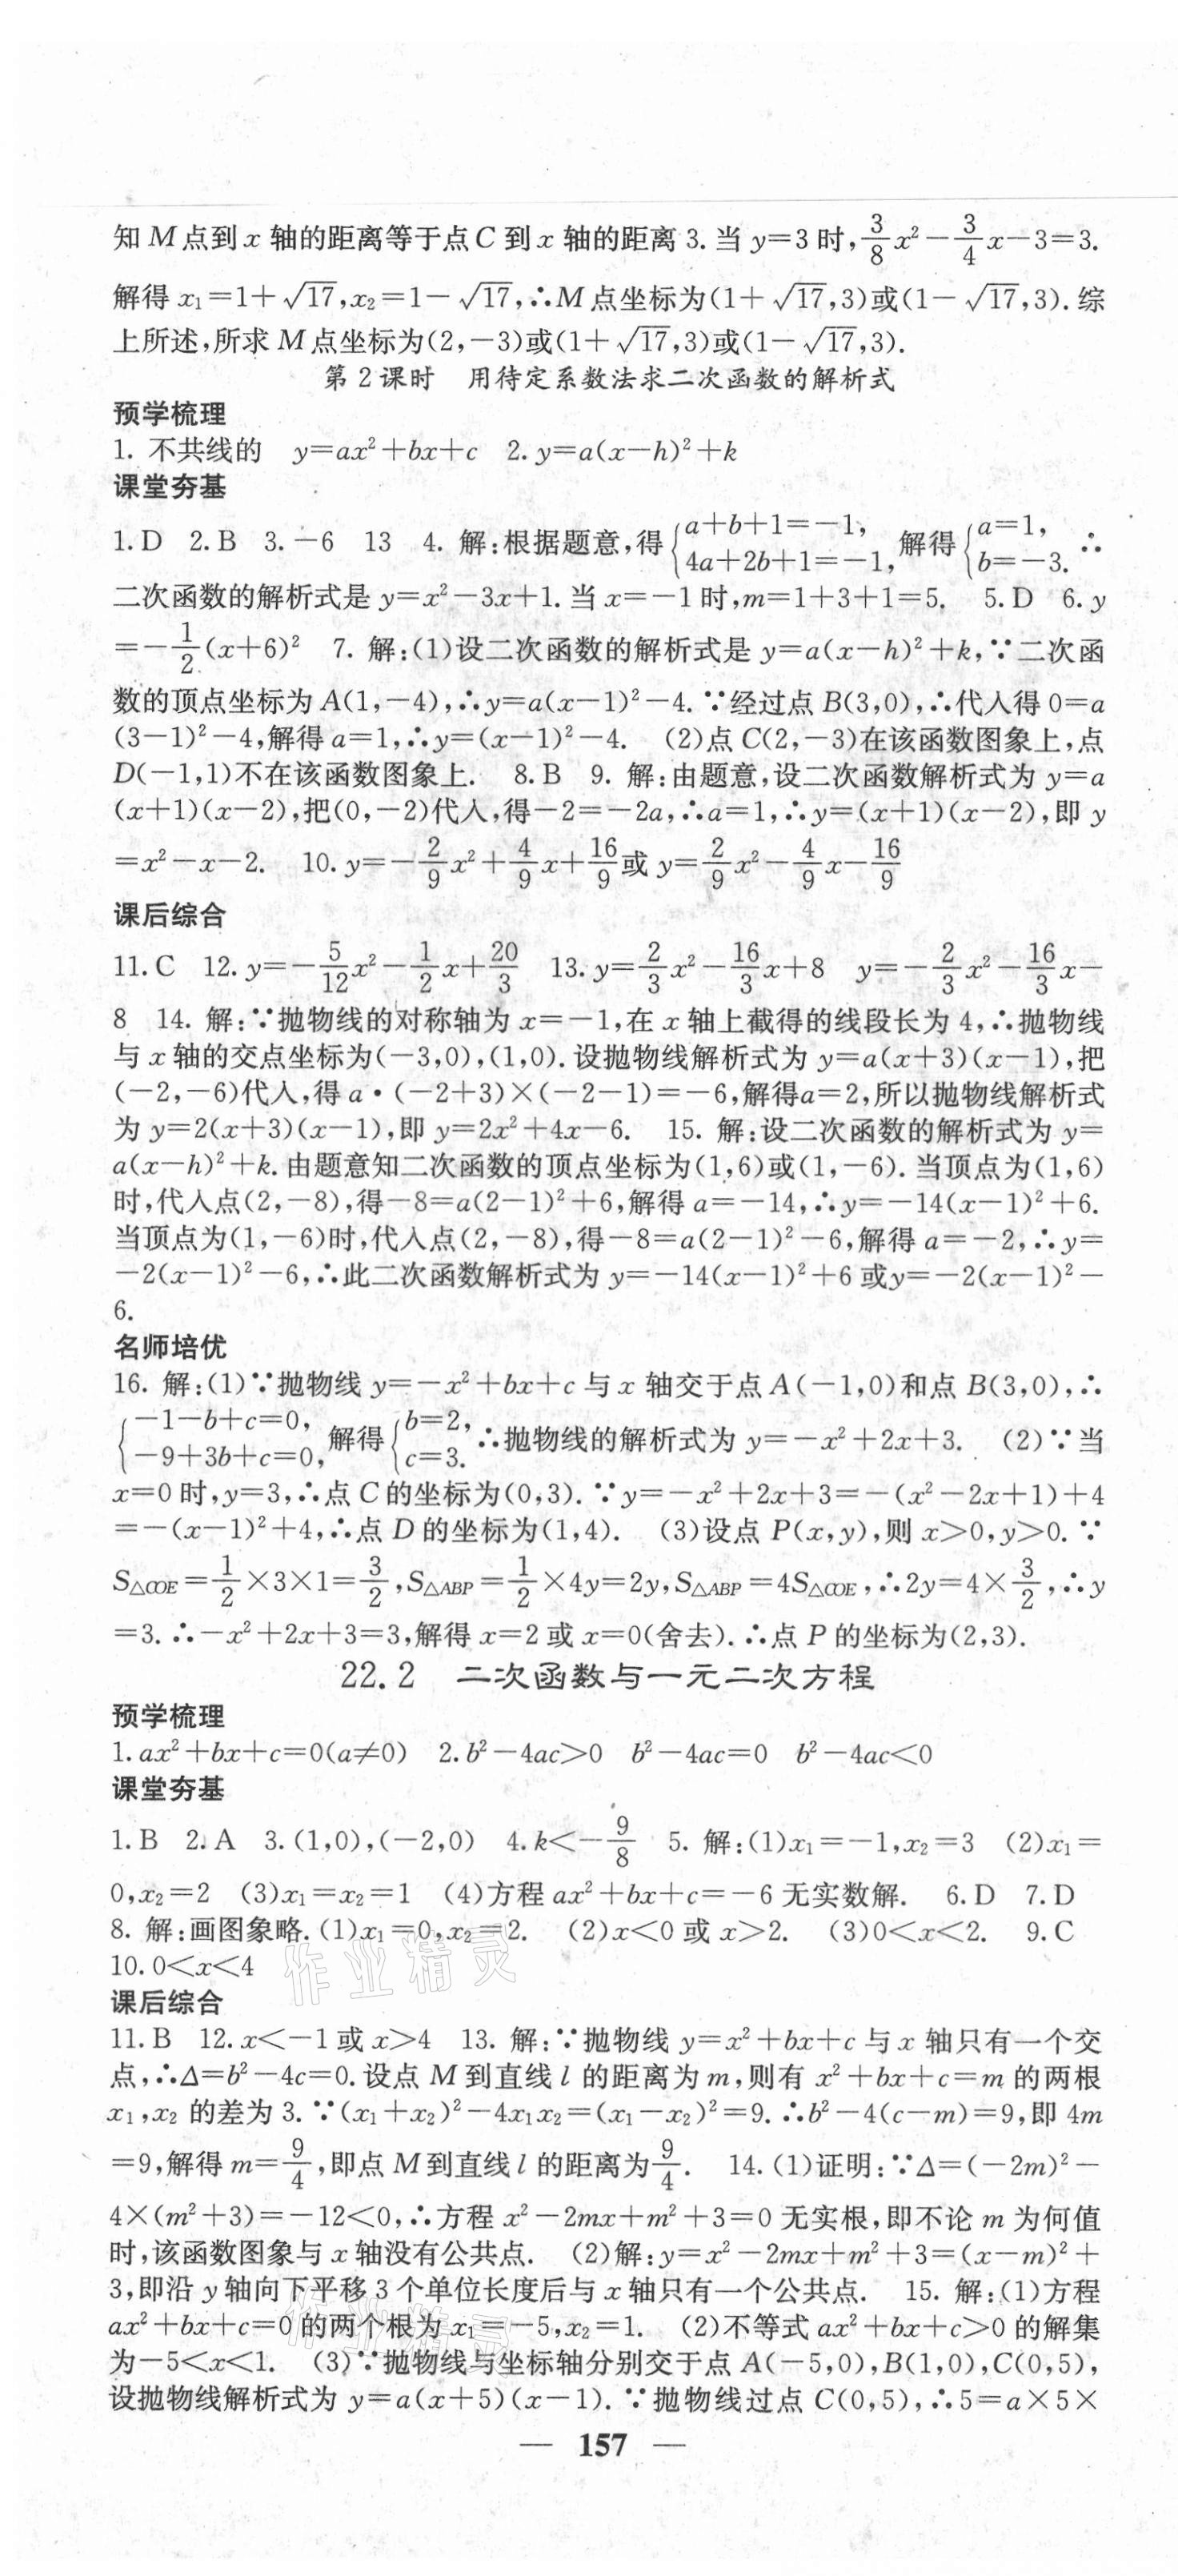 知M点到x轴的距离等于点C到x轴的距离3.当y=3时,3/8x²-3/4x-3=3.
解得x₁=1+√17,x₂=1-√17,∴M点坐标为(1+√17,3)或(1-√17,3).综
上所述,所求M点坐标为(2,-3)或(1+√17,3)或(1-√17,3).
第2课时 用待定系数法求二次函数的解析式
预学梳理
1. 不共线的 y=ax²+bx+c 2. y=a(x-h)²+k
课堂夯基
1. D 2. B 3. -6 13 4. 解:根据题意,得{a+b+1=-1, 4a+2b+1=-1, 解得{a=1, b=-3. ∴
二次函数的解析式是y=x²-3x+1.当x=-1时,m=1+3+1=5. 5. D 6. y
=-1/2(x+6)² 7. 解:(1)设二次函数的解析式是y=a(x-h)²+k,∵二次函
数的顶点坐标为A(1,-4),∴y=a(x-1)²-4.∵经过点B(3,0),∴代入得0=a
(3-1)²-4,解得a=1,∴y=(x-1)²-4. (2)点C(2,-3)在该函数图象上,点
D(-1,1)不在该函数图象上. 8. B 9. 解:由题意,设二次函数解析式为y=a
(x+1)(x-2),把(0,-2)代入,得-2=-2a,∴a=1,∴y=(x+1)(x-2),即y
=x²-x-2. 10. y=-2/9x²+4/9x+16/9或y=2/9x²-4/9x-16/9
课后综合
11. C 12. y=-5/12x²-1/2x+20/3 13. y=2/3x²-16/3x+8 y=-2/3x²-16/3x-
8 14. 解:∵抛物线的对称轴为x=-1,在x轴上截得的线段长为4,∴抛物线
与x轴的交点坐标为(-3,0),(1,0).设抛物线解析式为y=a(x+3)(x-1),把
(-2,-6)代入,得a·(-2+3)×(-2-1)=-6,解得a=2,所以抛物线解析式
为y=2(x+3)(x-1),即y=2x²+4x-6. 15. 解:设二次函数的解析式为y=
a(x-h)²+k.由题意知二次函数的顶点坐标为(1,6)或(1,-6).当顶点为(1,6)
时,代入点(2,-8),得-8=a(2-1)²+6,解得a=-14,∴y=-14(x-1)²+6.
当顶点为(1,-6)时,代入点(2,-8),得-8=a(2-1)²-6,解得a=-2,∴y=
-2(x-1)²-6,∴此二次函数解析式为y=-14(x-1)²+6或y=-2(x-1)²-
6.
名师培优
16. 解:(1)∵抛物线y=-x²+bx+c与x轴交于点A(-1,0)和点B(3,0),∴
{-1-b+c=0, -9+3b+c=0, 解得{b=2, c=3. ∴抛物线的解析式为y=-x²+2x+3. (2)∵当
x=0时,y=3,∴点C的坐标为(0,3).∵y=-x²+2x+3=-(x²-2x+1)+4
=-(x-1)²+4,∴点D的坐标为(1,4). (3)设点P(x,y),则x>0,y>0.∵
S△COE=1/2×3×1=3/2,S△ABP=1/2×4y=2y,S△ABP=4S△COE,∴2y=4×3/2,∴y
=3.∴-x²+2x+3=3,解得x=2或x=0(舍去).∴点P的坐标为(2,3).
22.2 二次函数与一元二次方程
预学梳理
1. ax²+bx+c=0(a≠0) 2. b²-4ac>0 b²-4ac=0 b²-4ac<0
课堂夯基
1. B 2. A 3. (1,0),(-2,0) 4. k<-9/8 5. 解:(1)x₁=-1,x₂=3 (2)x₁=
0,x₂=2 (3)x₁=x₂=1 (4)方程ax²+bx+c=-6无实数解. 6. D 7. D
8. 解:画图象略.(1)x₁=0,x₂=2. (2)x<0或x>2. (3)0<x<2. 9. C
10. 0<x<4
作业精灵
课后综合
11. B 12. x<-1或x>4 13. 解:∵抛物线y=x²+bx+c与x轴只有一个交
点,∴Δ=b²-4c=0.设点M到直线l的距离为m,则有x²+bx+c=m的两根
x₁,x₂的差为3.∵(x₁+x₂)²-4x₁x₂=(x₁-x₂)²=9.∴b²-4(c-m)=9,即4m
=9,解得m=9/4,即点M到直线l的距离为9/4. 14. (1)证明:∵Δ=(-2m)²-
4×(m²+3)=-12<0,∴方程x²-2mx+m²+3=0无实根,即不论m为何值
时,该函数图象与x轴没有公共点. (2)解:y=x²-2mx+m²+3=(x-m)²+
3,即沿y轴向下平移3个单位长度后与x轴只有一个公共点. 15. 解:(1)方程
ax²+bx+c=0的两个根为x₁=-5,x₂=1. (2)不等式ax²+bx+c>0的解集
作业精灵
为-5<x<1. (3)∵抛物线与坐标轴分别交于点A(-5,0),B(1,0),C(0,5),
设抛物线解析式为y=a(x+5)(x-1).∵抛物线过点C(0,5),∴5=a×5×
— 157 —